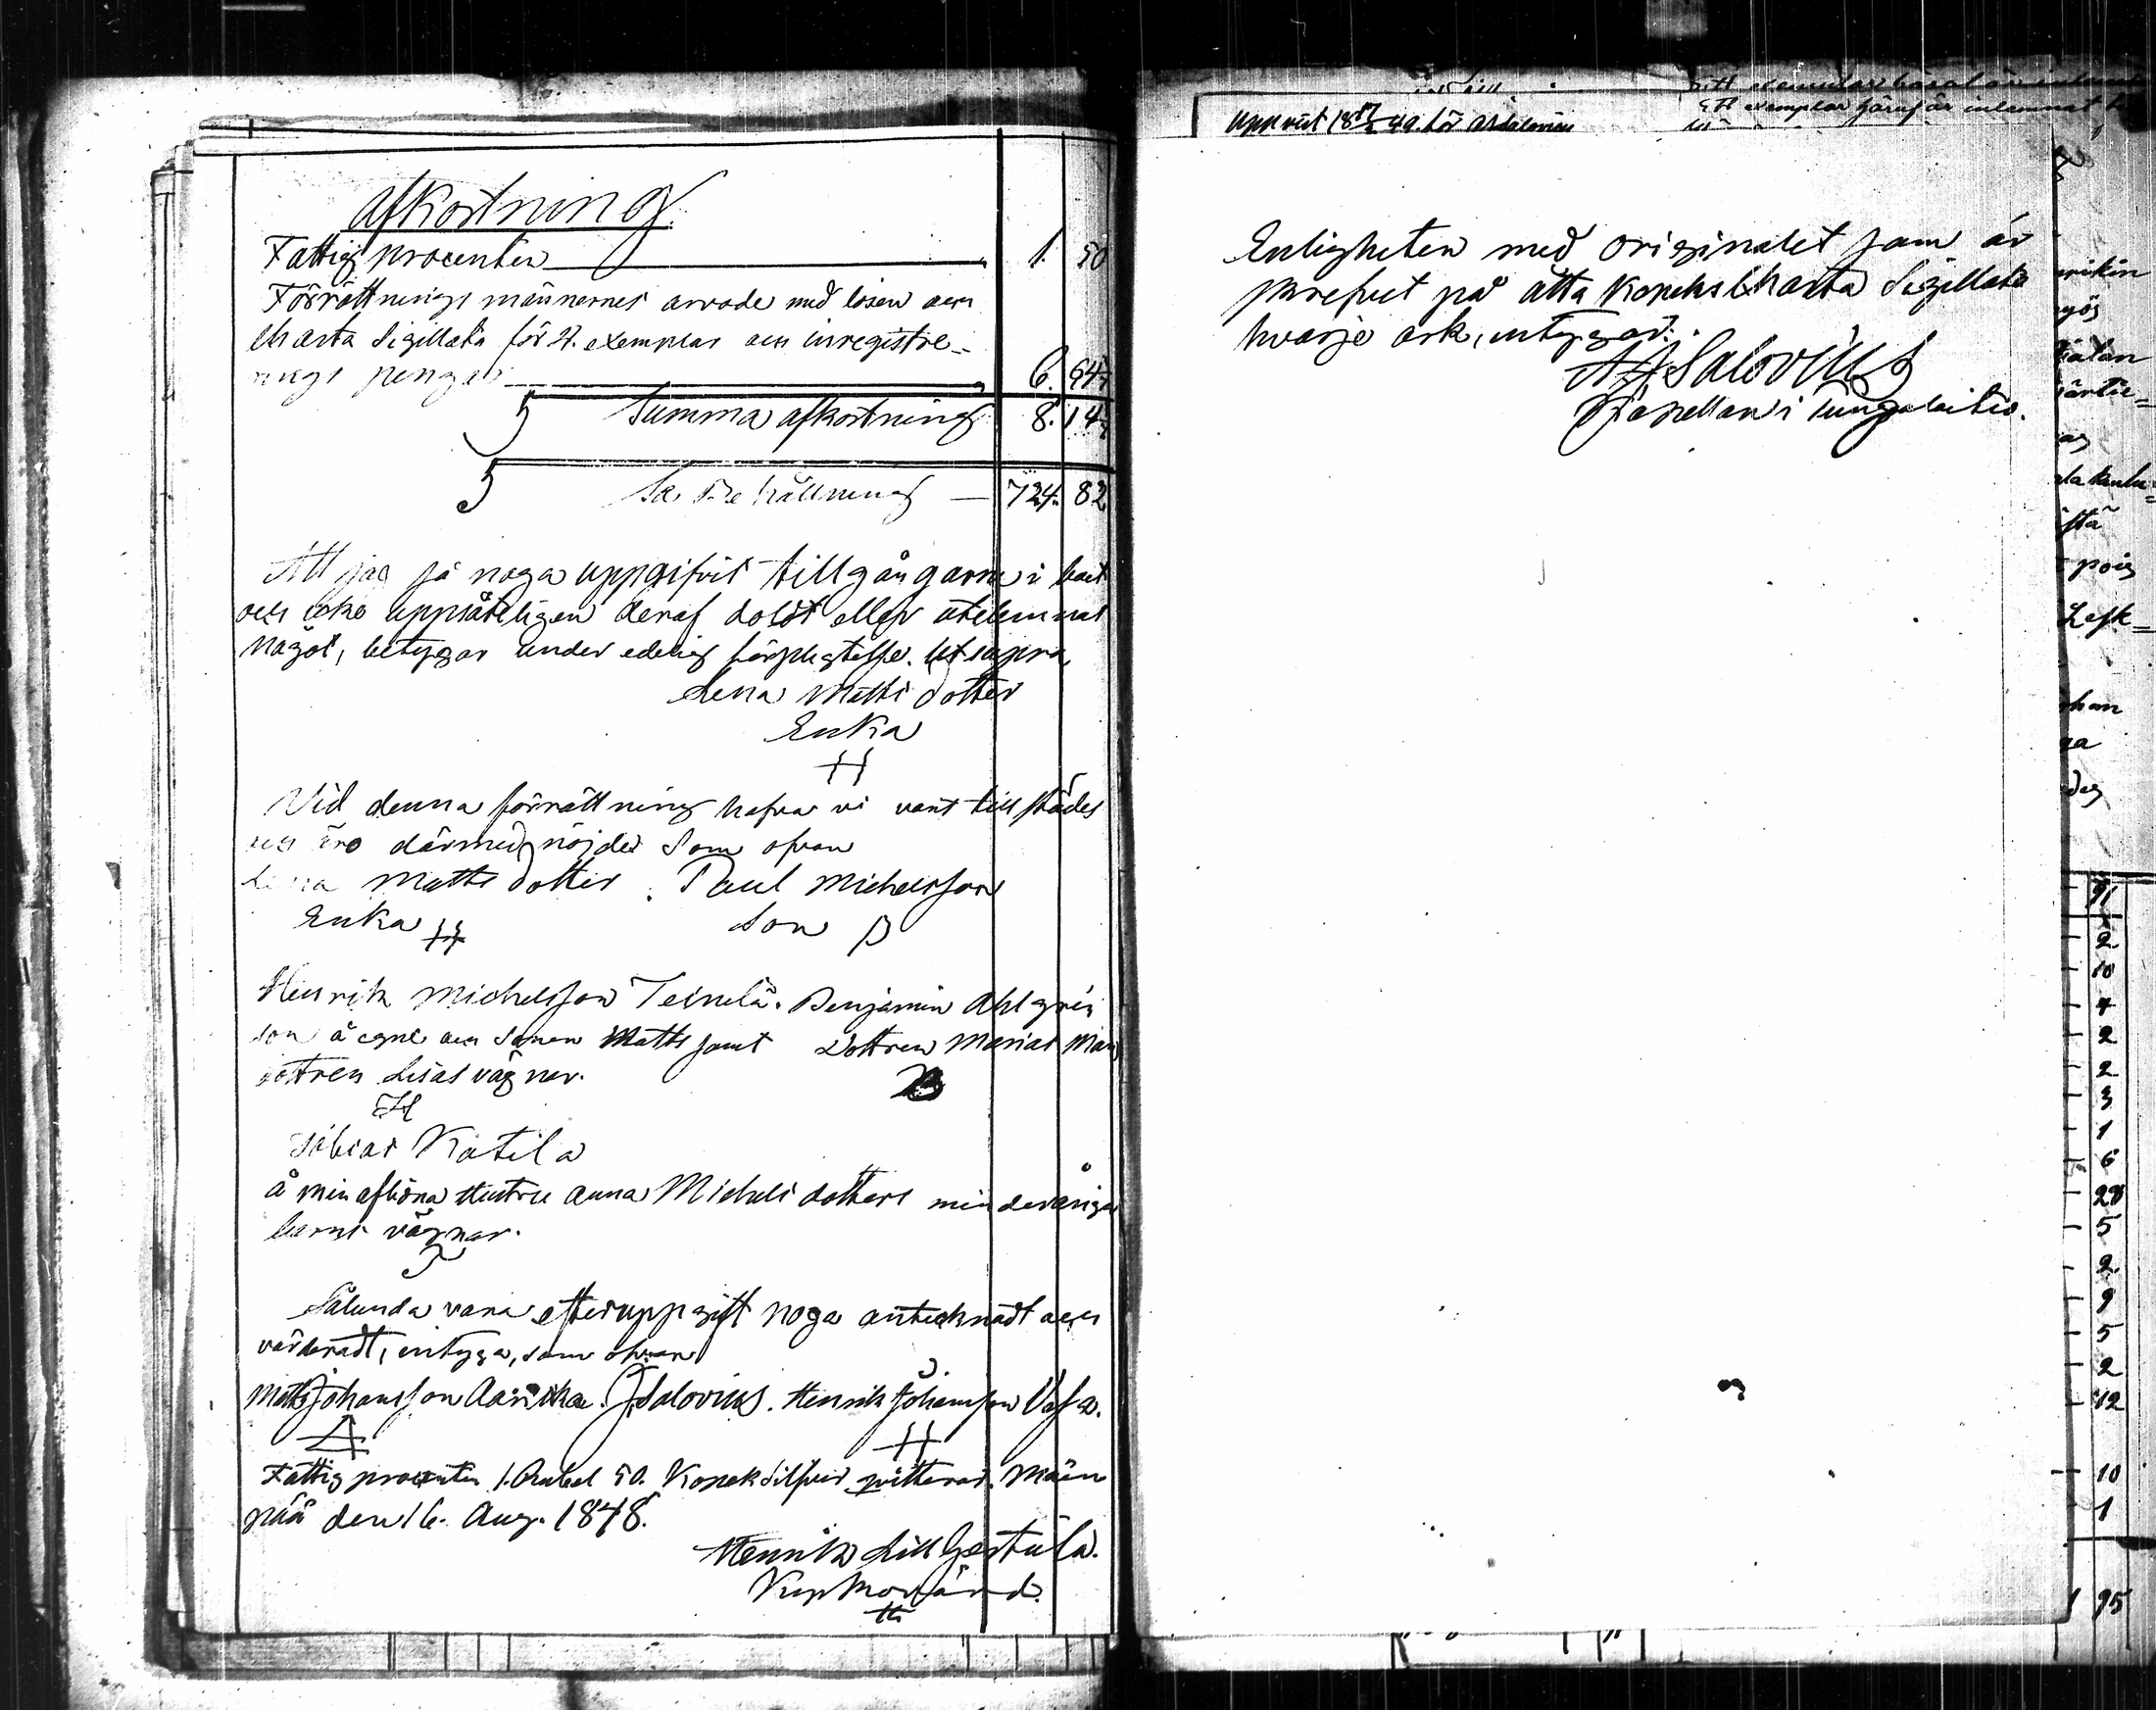 Afkortning
Fattig procenten 1. 50
Förrättnings männernes arvode med lösen och
Charta Sigillata för 2. exemplar och inregistre-
rings pengar 6. 64
Summa afkortning 8. 14
Sa Behållning — 724. 82
Att jag så noga uppgifvit tillgångarne i boet
och icke uppsåteligen deraf doldt eller utelemnat
något, betygar under edelig förpligtelse. Ut supra,
Lena Matts dotter
Enka
Vid denna förrättning hafva vi varit till städes
och äro därmed nöjde Som ofvan
Lena Matts dotter. Paul Michelsson
Enka Son
Henrik Michelsson Teinilä. Benjamin Ahlgrén
son å egne och Sonen Matts samt Dottren Marias Man
dottren Lisas vägnar.
Tobias Katila
å min aflidna Hustru Anna Michels dotters minderåriga
barns vägnar.
Sålunda vara efter uppgift noga antecknadt och
värderadt, intyga, som ofvan
Matts Johansson J Salovius. Henrik Johansson
Fattig procenten 1. Rubel 50. Kopek Silfver qvitteras.
den 16. Aug. 1848.
Henrik Lill
Kyrkovärd.
Enligheten med originalet som är
skrefvet på åtta Kopeks Charta Sigillata
hvarje ark, intygar.
A A Salovius
Kapellan i Lungelaitio.
Ett exemplar häraf är inlemnat
91
2
10
4
2
2
3
1
6
28
5
2
9
5
2
12
10
1
95